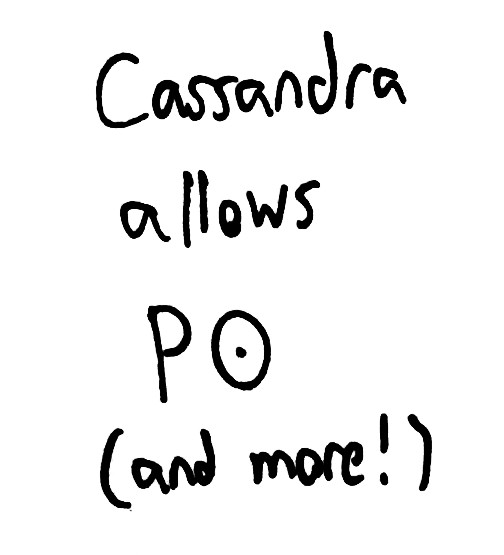 Cassandra
allows
P⊙
(and more!)